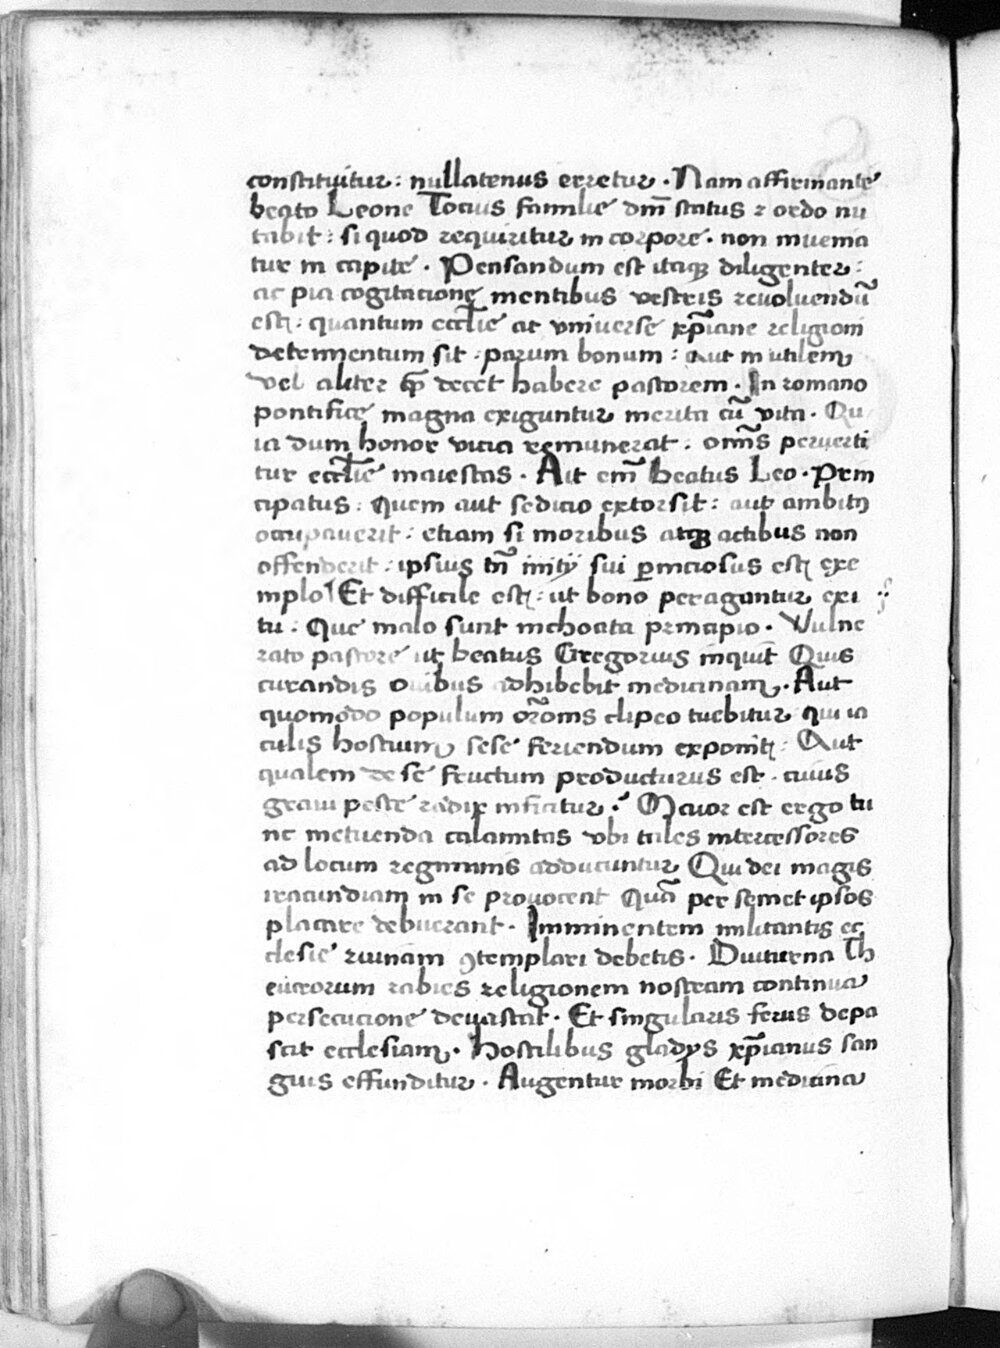 constituitur : nullatenus erretur . Nam affirmante
beato Leone Tocius familie dm̄ status ⁊ ordo nu
tabit : si quod requiritur in corpore . non inuenia
tur in capite . Pensandum est itaqꝫ diligenter :
ac pia cogitacione mentibus vestris reuoluendū
est : quantum eccl̄ie ac vniuerse xp̄iane religioni
detrimentum sit . parum bonum : aut inutilem
vel aliter qꝫ decet habere pastorem . In romano
pontifice magna exiguntur merita cū vita . Qu
ia dum honor vicia remunerat : om̄s peruerti
tur eccl̄ie maiestas . Ait em̄ beatus Leo . Prin
cipatus : Quem aut sedicio extorsit : aut ambitꝫ
occupauerit : etiam si moribus atqꝫ actibus non
offenderit : ipsius tn̄ initij sui ꝑniciosus est exe
mplo Et difficile est : ut bono peragantur exi
tu : Que malo sunt inchoata principio . Vulne
rato pastore ut beatus Gregorius inquit Quis
curandis ouibus adhibebit medicinam . Aut
quomodo populum or̄oms clipeo tuebitur qui ia
culis hostium sese feriendum exponit : Aut
qualem de se fructum producturus est . cuius
graui peste radix inficitur . Maior est ergo tu
nc metuenda calamitas vbi tales intercessores
ad locum regiminis adducuntur Qui dei magis
iracundiam in se prouocent Quā per semet ipsos
placare debuerant . Imminentem militantis ec
clesie ruinam ꝯtemplari debetis . Diuturna Th
eucrorum rabies religionem nostram continua
persecucione deuastat . Et singularis ferus depa
scit ecclesiam . Hostilibus gladijs xp̄ianus san
guis effunditur . Augentur morbi Et medicina